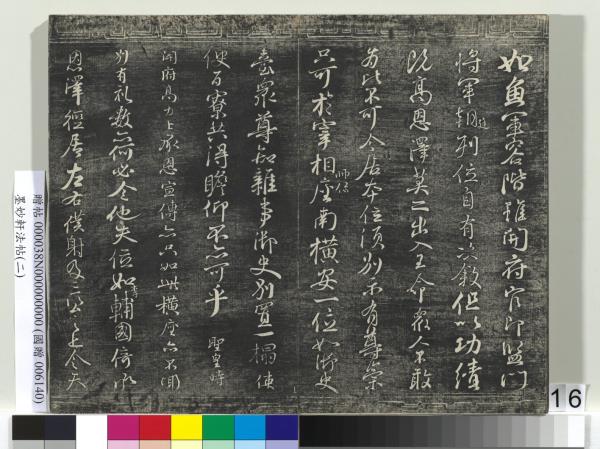 如魚軍容階雖開府官即監門
將軍朝廷列位自有次敘但以功績
既高恩澤莫二出入王命眾人不敢
為比不可令居本位須別示有尊崇
只可於宰相座南橫安一位如御史
師保
臺眾尊知雜事御史別置一榻使
便百寮共得瞻仰不亦可乎聖皇時
開府高力士承恩宣傳亦只如此橫座亦不聞
別有禮數亦何必令他失位如李輔國倚承
恩澤徑居左右僕射及三公之上令天
贈帖 000038N000000000 (國贈 006140)
墨妙軒法帖(二)
16